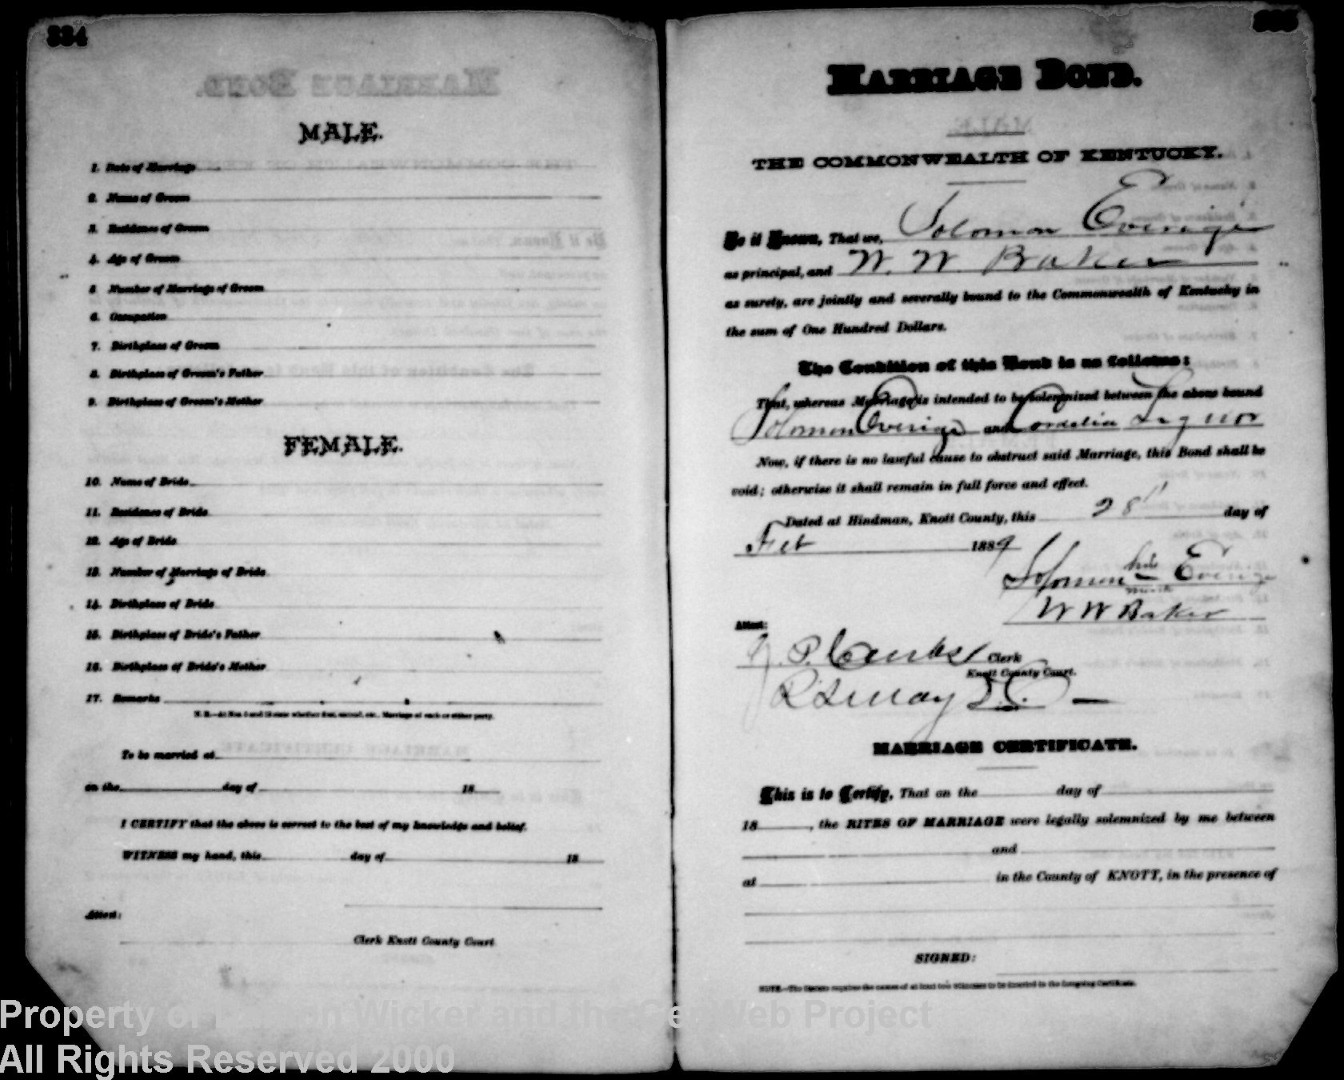 334
MALE.
1. Date of Marriage
2. Name of Groom
3. Residence of Groom
4. Age of Groom
5. Number of Marriage of Groom
6. Occupation
7. Birthplace of Groom
8. Birthplace of Groom's Father
9. Birthplace of Groom's Mother
FEMALE.
10. Name of Bride
11. Residence of Bride
12. Age of Bride
13. Number of Marriage of Bride
14. Birthplace of Bride
15. Birthplace of Bride's Father
16. Birthplace of Bride's Mother
17. Remarks
N. B.—At Nos. 5 and 13 state whether first, second, etc., Marriage of each or either party.
To be married at
on the day of 18
I CERTIFY that the above is correct to the best of my knowledge and belief.
WITNESS my hand, this day of 18
Attest:
Clerk Knott County Court
335
MARRIAGE BOND.
THE COMMONWEALTH OF KENTUCKY.
Be it Known, That we, Solomon Everige
as principal, and W. W. Baker
as surety, are jointly and severally bound to the Commonwealth of Kentucky in
the sum of One Hundred Dollars.
The Condition of this Bond is as follows:
That, whereas Marriage is intended to be solemnized between the above bound
Solomon Everige and Cordelia
Now, if there is no lawful cause to obstruct said Marriage, this Bond shall be
void; otherwise it shall remain in full force and effect.
Dated at Hindman, Knott County, this 28 day of
Feb 1889
Solomon his Everige
mark
W W Baker
Attest:
Clerk
Knott County Court.
D.C.
MARRIAGE CERTIFICATE.
This is to Certify, That on the day of
18 , the RITES OF MARRIAGE were legally solemnized by me between
and
at in the County of KNOTT, in the presence of
SIGNED:
NOTE.—The Statute requires the names of at least two witnesses to be inserted in the foregoing Certificate.
Property of Wicker and the Web Project
All Rights Reserved 2000